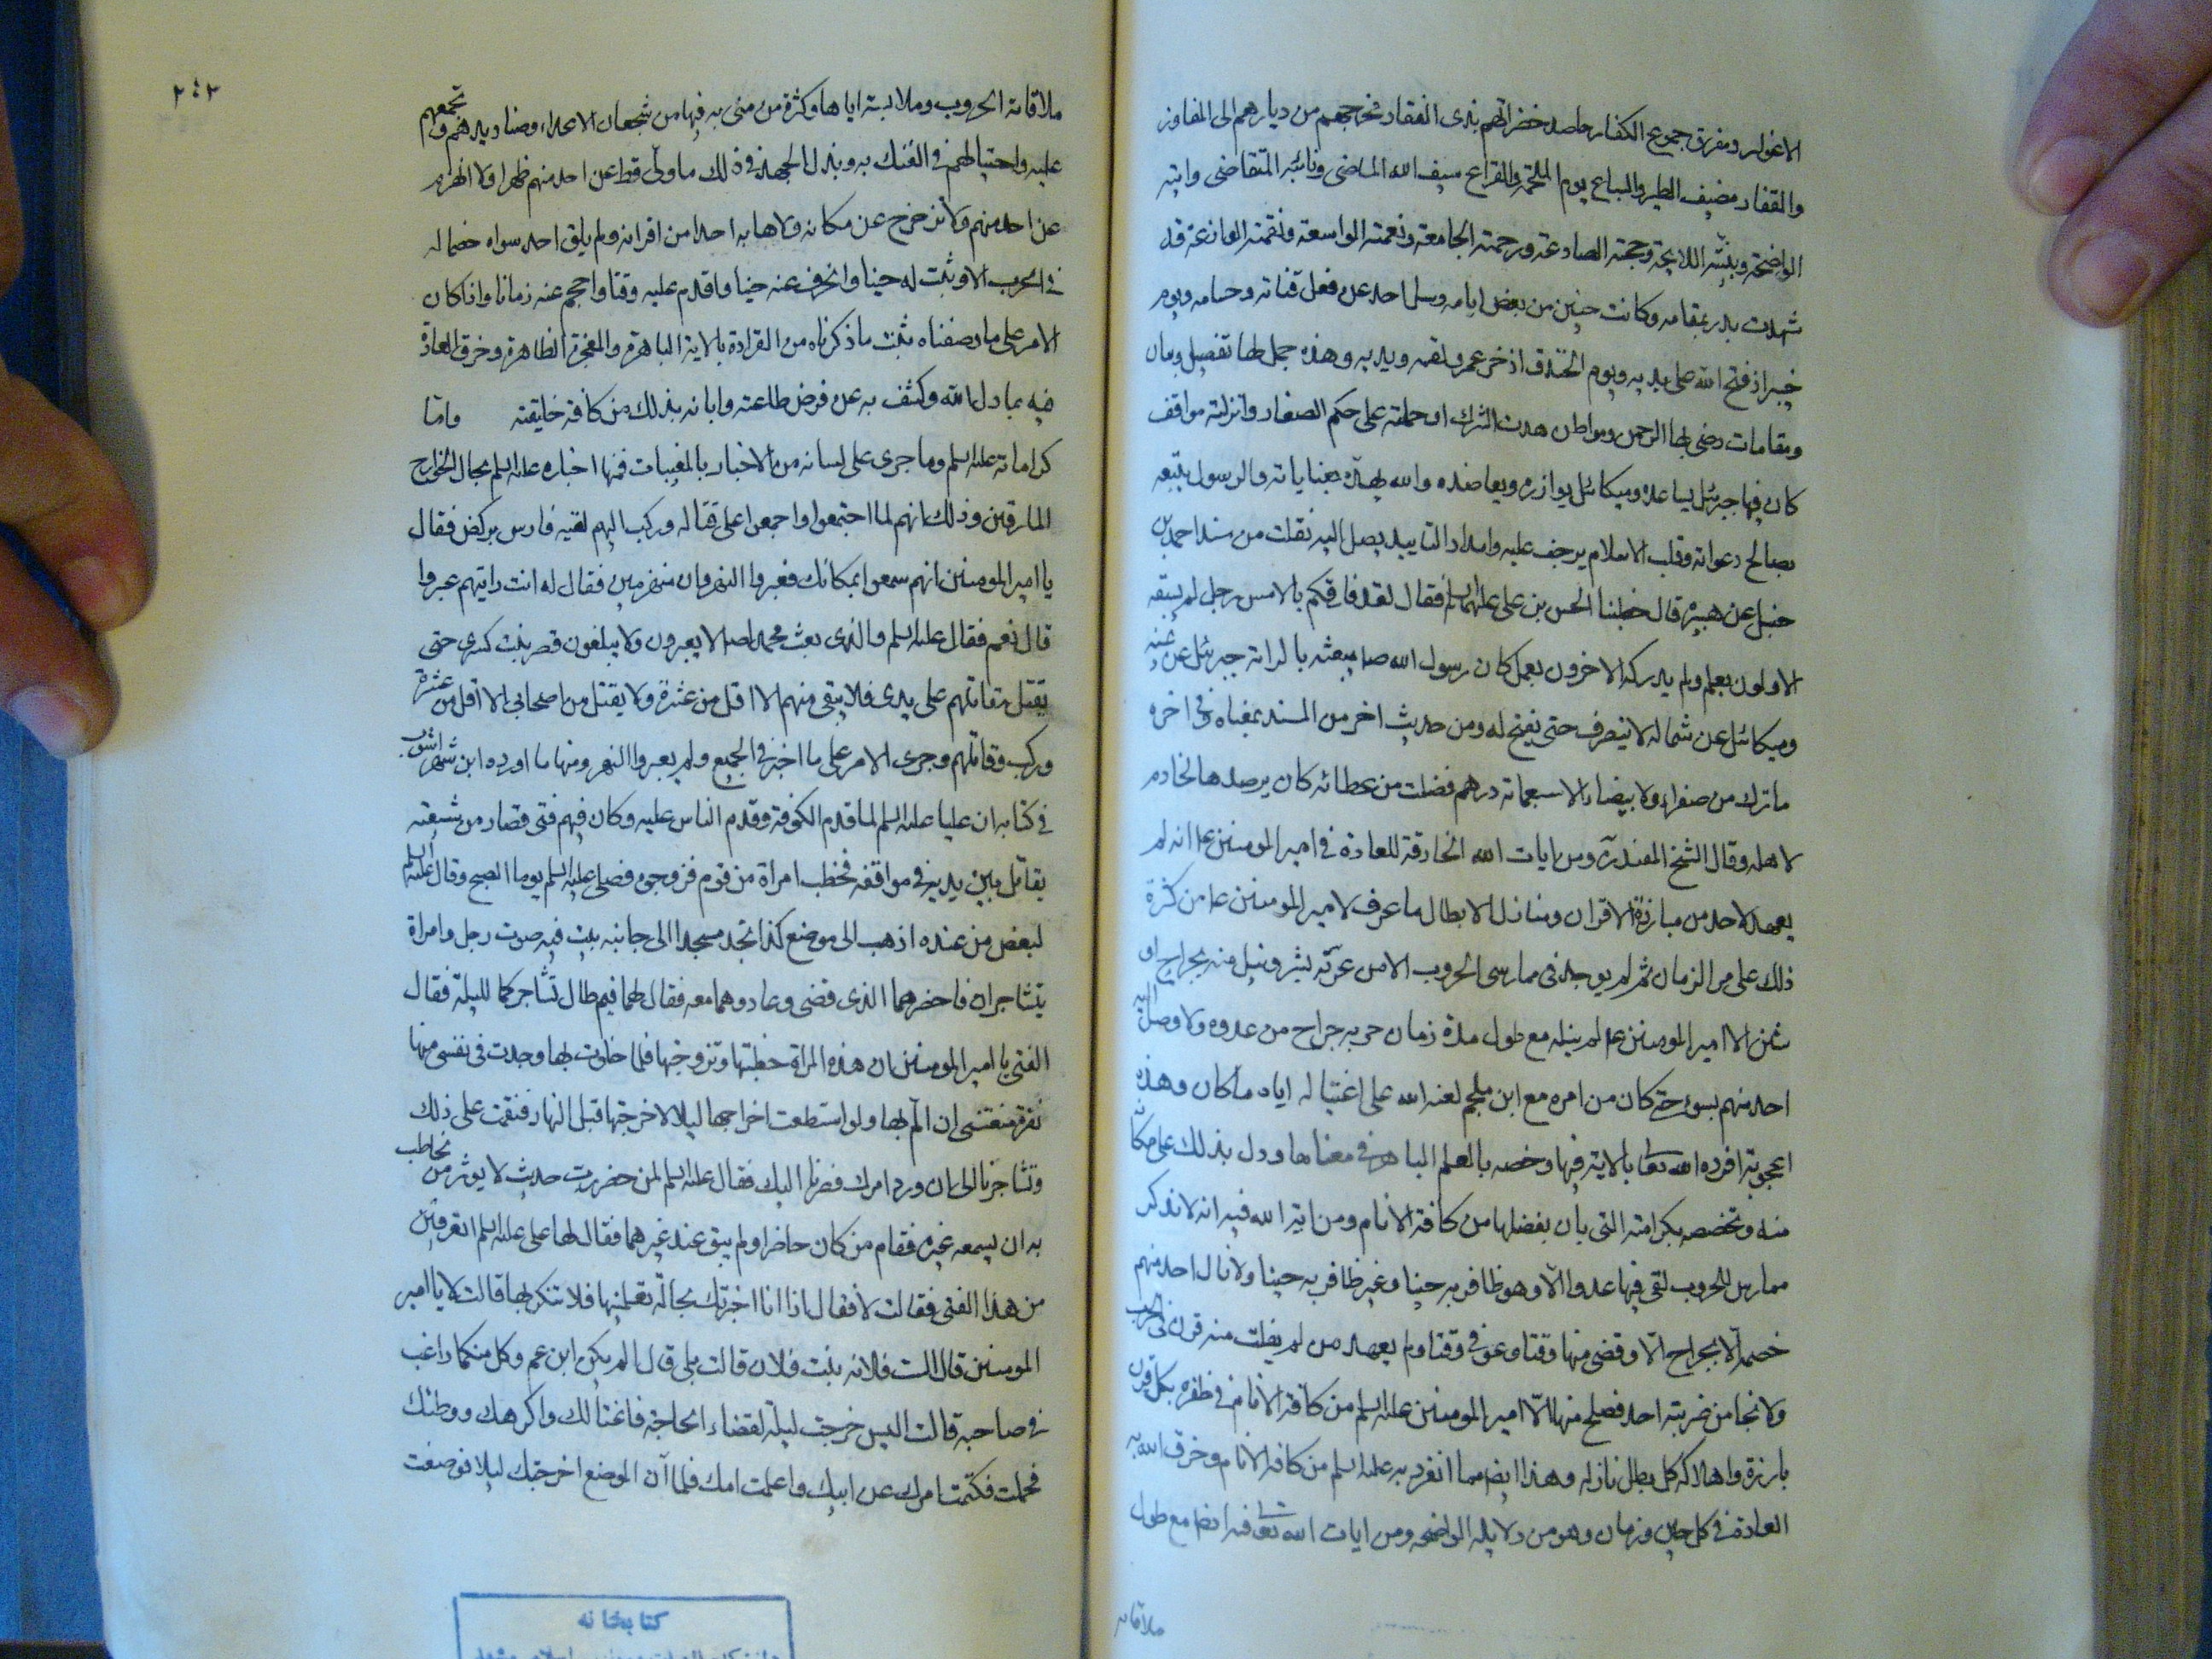 الاغوار ومفرق جموع الكفار حاصد خضرائهم بذى الفقار مخرجهم من ديارهم الى المفاوز
والقفار مضيف الطير والسباع يوم الملحمة والقراع سيف الله الماضى ونائبه المتقاضى وايته
الواضحة وبينته اللايحة وحجته الصادعة ورحمته الجامعة ونعمته الواسعة ونقمته الوازعة قد
شهدت بدر بمقامه وكانت حنين من بعض ايامه وسل احد عن فعل قناته وحسامه ويوم
خيبر اذ فتح الله على يديه ويوم الخندق اذ خر عمرو لفمه ويديه وهذه جمل لها تفصيل وبيان
ومقامات رضى بها الرحمن ومواطن هدت الشرك وحملته على حكم الصغار وانزلته مواقف
كان فيها جبرئيل يساعده وميكائيل يوازره ويعاضده والله يمده بعناياته والرسول يتبعه
بصالح دعواته وقلب الاسلام يرجف عليه وامداد التاييد يصل اليه نقلت من مسند احمد بن
حنبل عن هبيرة قال خطبنا الحسن بن على عليهما السلم فقال لقد فارقكم بالامس رجل لم يسبقه
الاولون بعلم ولم يدركه الاخرون بعمل كان رسول الله صلى يبعثه بالراية جبرئيل عن يمينه
وميكائيل عن شماله لا ينصرف حتى يفتح له ومن حديث اخر من المسند بمعناه وفى اخره
ما ترك من صفراء ولا بيضاء الا سبعمائة درهم فضلت من عطائه كان يرصدها لخادم
لاهله وقال الشيخ المفيد ره ومن ايات الله الخارقة للعادة فى امير المومنين عم انه لم
يعهد لاحد من مبارزة الاقران ومنازلة الابطال ما عرف لامير المومنين عم من كثرة
ذلك على مر الزمان ثم لم يوجد فى ممارسى الحروب الا من عرته بشر ونيل منه بجراح او
شين الا امير المومنين عم لم ينله مع طول مدة زمان حربه جراح من عدوه ولا وصل اليه
احد منهم بسوء حتى كان من امره مع ابن ملجم لعنه الله على اغتياله اياه ما كان وهذه
اعجوبة افرده الله تعالى بالاية فيها وخصه بالعلم الباهر فى معناها ودل بذلك على مكانه
منه وتخصصه بكرامته التى بان بفضلها من كافة الانام ومن اية الله فيه انه لا يذكر
ممارس للحروب لقى فيها عدوا الا وهو ظافر به حينا وغير ظافر به حينا ولا نال احد منهم
خصمه الا بجراح الا وقضى منها وقتا وعوفى وقتا ولم يعهد من لم يفلت منه قرن فى الحرب
ولا نجا من ضربته احد فصلح منها الا امير المومنين عليه السلم من كافة الانام فى ظفره بكل قرن
بارزه واهلاكه كل بطل نازله وهذا ايضا مما انفرد به عليه السلم من كافة الانام وخرق الله به
العادة فى كل حين وزمان وهو من دلايله الواضحة ومن ايات الله تعالى فيه ايضا مع طول
ملاقاته
٢٤٢
ملاقاته الحروب وملابسته اياها وكثرة من منى به فيها من شجعان الاعداء وصناديدهم وتجمعهم
عليه واحتيالهم فى الفتك به وبذل الجهد فى ذلك ما ولى قط عن احد منهم ظهرا ولا انهزم
عن احد منهم ولا تزحزح عن مكانه ولا هاب احدا من اقرانه ولم يلق احد سواه خصما له
فى الحرب الا وثبت له حينا وانحرف عنه حينا واقدم عليه وقتا واحجم عنه زمانا واذا كان
الامر على ما وصفناه ثبت ما ذكرناه من انفراده بالاية الباهرة والمعجزة الظاهرة وخرق العادة
فيه بما دل الله وكشف به عن فرض طاعته وابانه بذلك من كافة خليقته واما
كراماته عليه السلم وما جرى على لسانه من الاخبار بالمغيبات فمنها اخباره عليه السلم بحال الخوارج
المارقين وذلك انهم لما اجتمعوا واجمعوا على قتاله وركب اليهم لقيه فارس يركض فقال
يا امير المومنين انهم سمعوا بمكانك فعبروا النهروان منهزمين فقال له انت رايتهم عبروا
قال نعم فقال عليه السلم والذى بعث محمدا صلى لا يعبرون ولا يبلغون قصر بنت كسرى حتى
يقتل مقاتلهم على يدى فلا يبقى منهم الا اقل من عشرة ولا يقتل من اصحابى الا اقل من عشرة
وركب وقاتلهم وجرى الامر على ما اخبر فى الجميع ولم يعبروا النهر ومنها ما اورده ابن شهراشوب
فى كتابه ان عليا عليه السلم لما قدم الكوفة وقدم الناس عليه وكان فيهم فتى فصار من شيعته
يقاتل بين يديه فى مواقفه فخطب امراة من قوم فزوجوه فصلى عليه السلم يوما الصبح وقال عليه السلم
لبعض من عنده اذهب الى موضع كذا تجد مسجدا الى جانبه بيت فيه صوت رجل وامراة
يتشاجران فاحضرهما الذى فمضى وعاد وهما معه فقال لهما فيم طال تشاجركما الليلة فقال
الفتى يا امير المومنين ان هذه المراة خطبتها وتزوجتها فلما خلوت بها وجدت فى نفسى منها
نفرة منعتنى ان الم بها ولو استطعت اخراجها ليلا لاخرجتها قبل النهار فنقمت على ذلك
وتشاجرنا الى ان ورد امرك فصرنا اليك فقال عليه السلم لمن حضره رب حديث لا يوثر من يخاطب
به ان يسمعه غيره فقام من كان حاضرا ولم يبق عنده غيرهما فقال لها على عليه السلم اتعرفين
من هذا الفتى فقالت لا فقال اذا انا اخبرتك بحالة تعلمينها فلا تنكريها قالت لا يا امير
المومنين قال الست فلانة بنت فلان قالت بلى قال الم يكن ابن عم وكل منكما راغب
فى صاحبه قالت اليس خرجت ليلة لقضاء الحاجة فاغتالك واكرهك ووطئك
فحملت فكتمت امرك عن ابيك واعلمت امك فلما آن الوضع اخرجتك ليلا فوضعت
كتابخانه